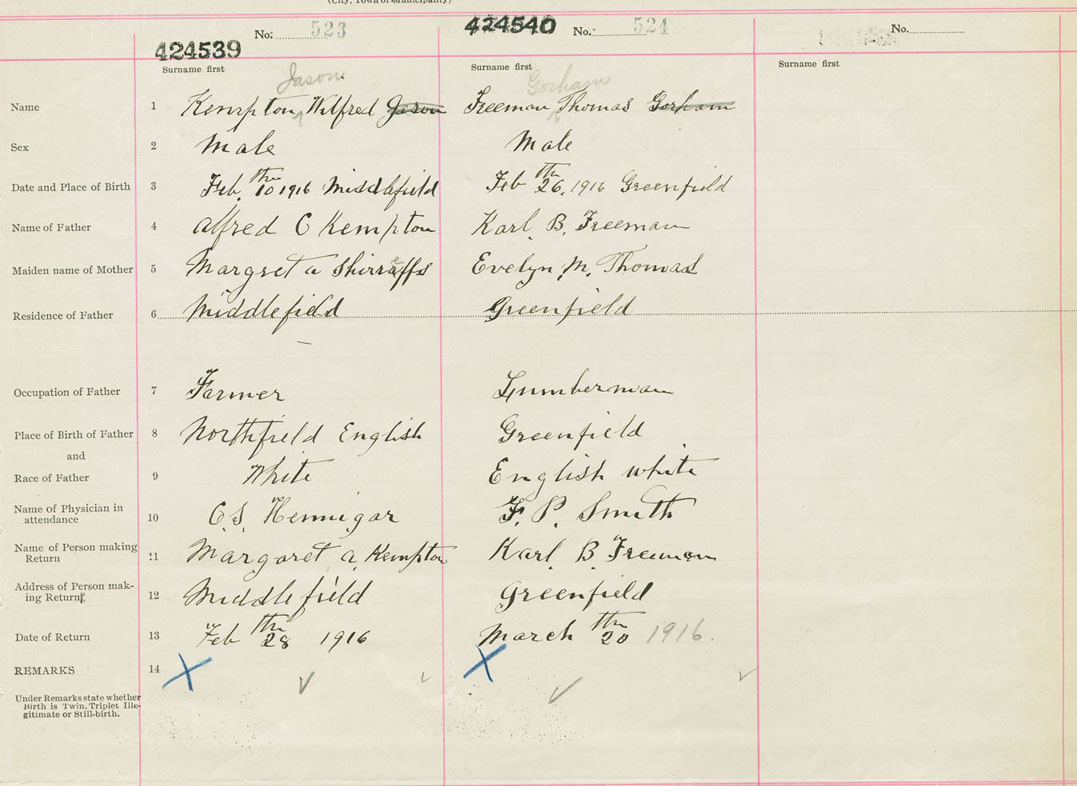 (City, Town or Municipality)
No: 523 No: 524 No.
424539 424540
Surname first Surname first Surname first
Jason Gorham
Name 1 Kempton, Wilfred Jason Freeman Thomas Gorham
Sex 2 Male Male
Date and Place of Birth 3 Feb. 10th 1916 Middlefield Feb 26th. 1916 Greenfield
Name of Father 4 Alfred C Kempton Karl. B. Freeman
Maiden name of Mother 5 Margret a Shirreffs Evelyn. M. Thomas
Residence of Father 6 Middlefield Greenfield
Occupation of Father 7 Farmer Lumberman
Place of Birth of Father 8 Northfield English Greenfield
and
Race of Father 9 White English white
Name of Physician in
attendance 10 C.S. Hennigar F. P. Smith
Name of Person making
Return 11 Margaret a. Kempton Karl. B. Freeman
Address of Person mak-
ing Return 12 Middlefield Greenfield
Date of Return 13 Feb 28th 1916 March 20th 1916.
REMARKS 14 X X
Under Remarks state whether
Birth is Twin, Triplet Ille-
gitimate or Still-birth.